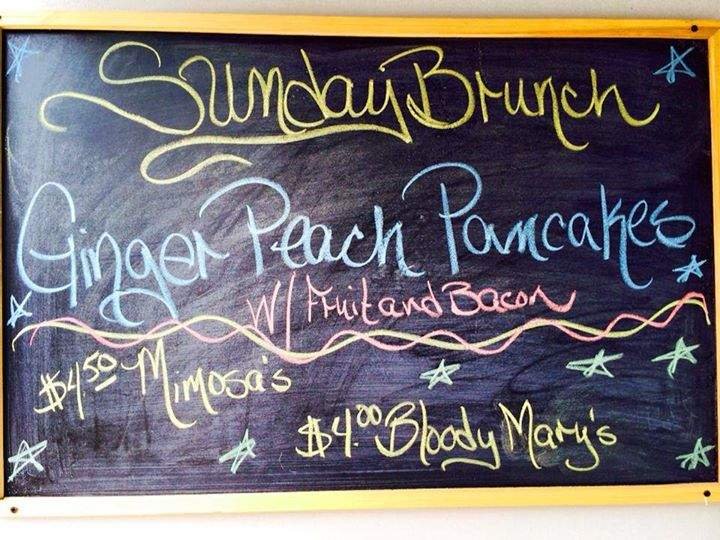 Sunday Brunch
Ginger Peach Pancakes
W/ Fruit and Bacon
$4.50 Mimosa's
$4.00 Bloody Mary's